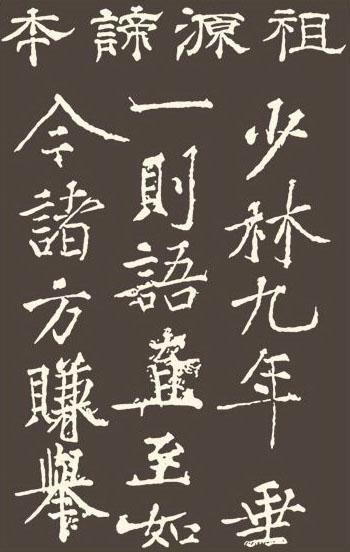 祖源諦本
少林九年垂
一則語直至如
今諸方賺舉